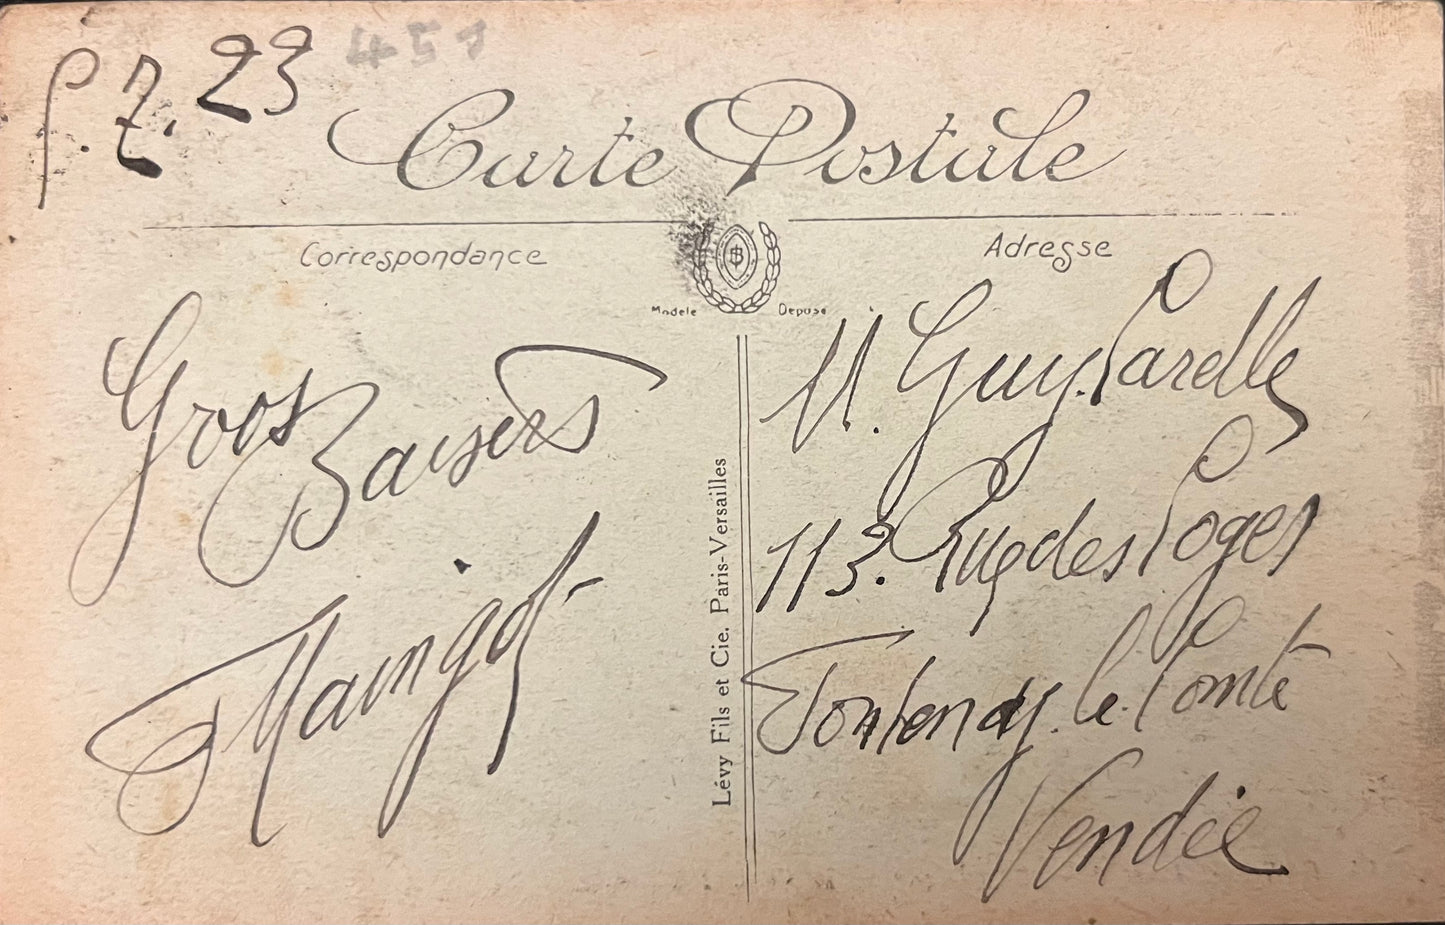 P. Z. 23 451
Carte Postale
Correspondance
Adresse
Modele Deposé
Gros
Baisers
Maingot
Lévy Fils et Cie. Paris-Versailles
M. Guy Carelle
113. Rue des Loges
Fontenay. le. Comte
Vendée